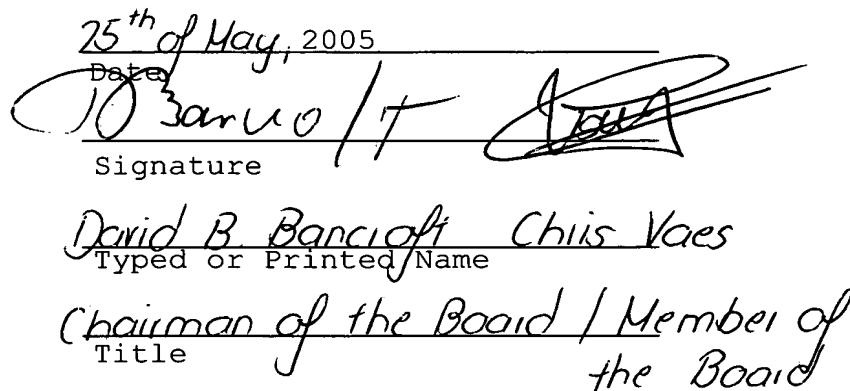 25th of May, 2005
Date
Signature
David B. Bancroft Chris Vaes
Typed or Printed Name
Chairman of the Board / Member of
Title
the Board